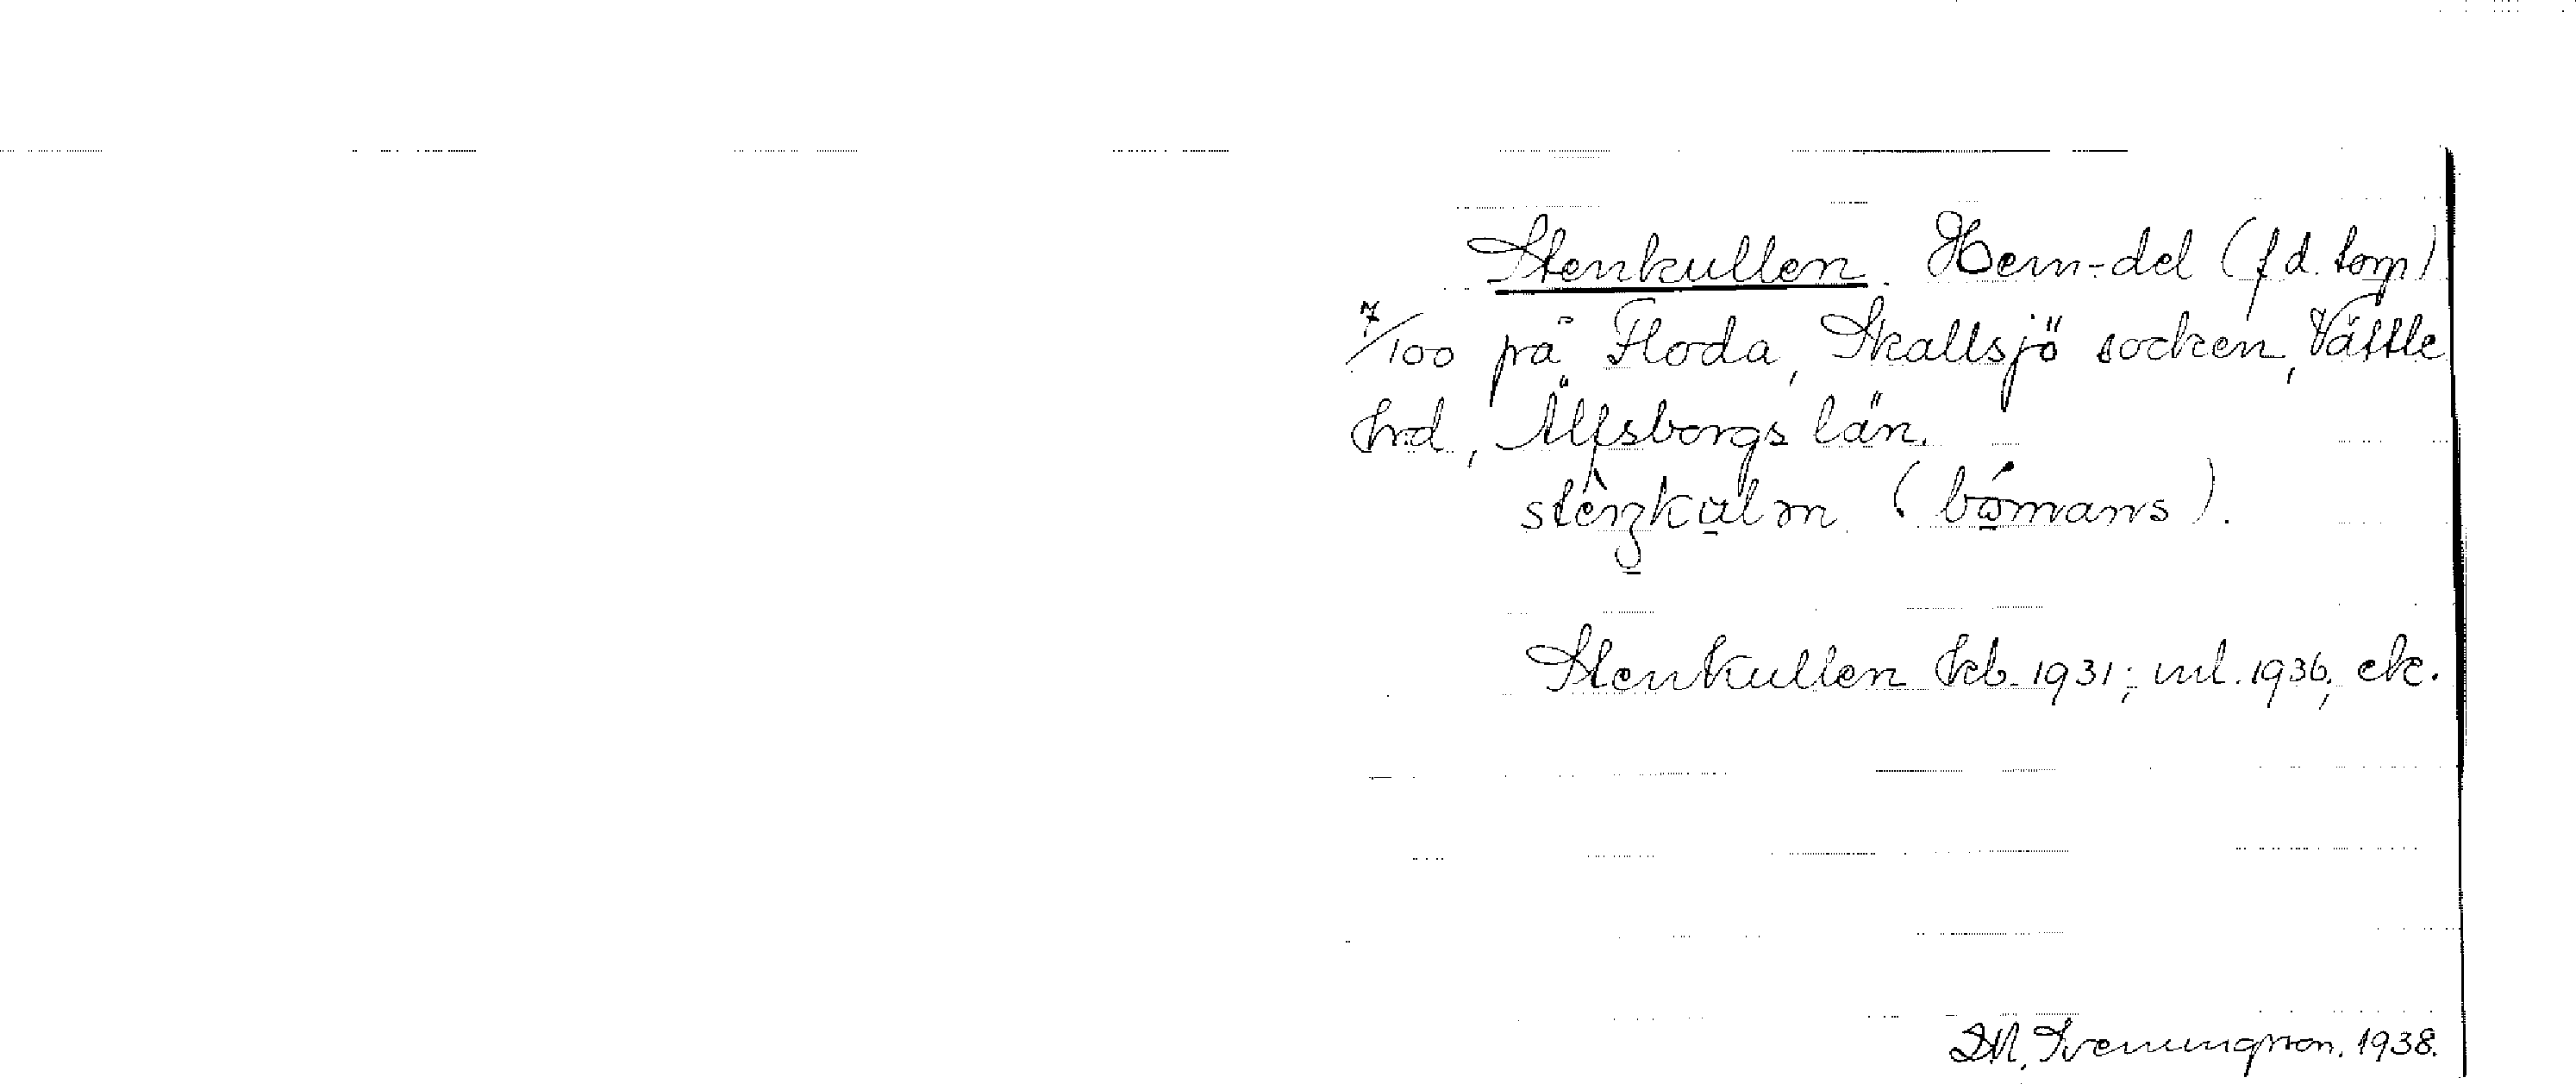 Stenkullen. Hem-del (f d. torp)
7/100 på Floda, Skallsjö socken, Vättle
hrd, Älfsborgs län.
(bómans).
Stenkullen kb. 1931; ml. 1936, etc.
Svenungsson. 1938.